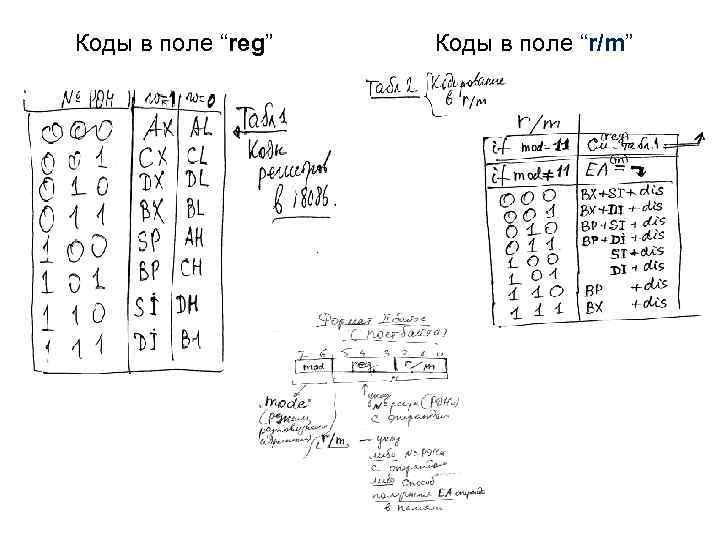 Коды в поле “reg”
Коды в поле “r/m”
№ РОН w=1 w=0
000 AX AL
001 CX CL
010 DX DL
011 BX BL
100 SP AH
101 BP CH
110 SI DH
111 DI BH
Табл1
Коды
регистров
в i8086.
Табл 2 Кодирование
в r/m
r/m
if mod=11 (reg) См. табл.1
if mod≠11 EA (m) =
000 BX+SI+dis
001 BX+DI+dis
010 BP+SI+dis
011 BP+DI+dis
100 SI+dis
101 DI+dis
110 BP +dis
111 BX +dis
Формат II байта
(постбайта)
7 6 5 4 3 2 1 0
mod reg r/m
"mode"
(режим
адресации)
указ.
№ регистра (РОНа)
с операндом
r/m — указ
либо № РОНа
с операндом
либо способ
получения EA операнда
в памяти